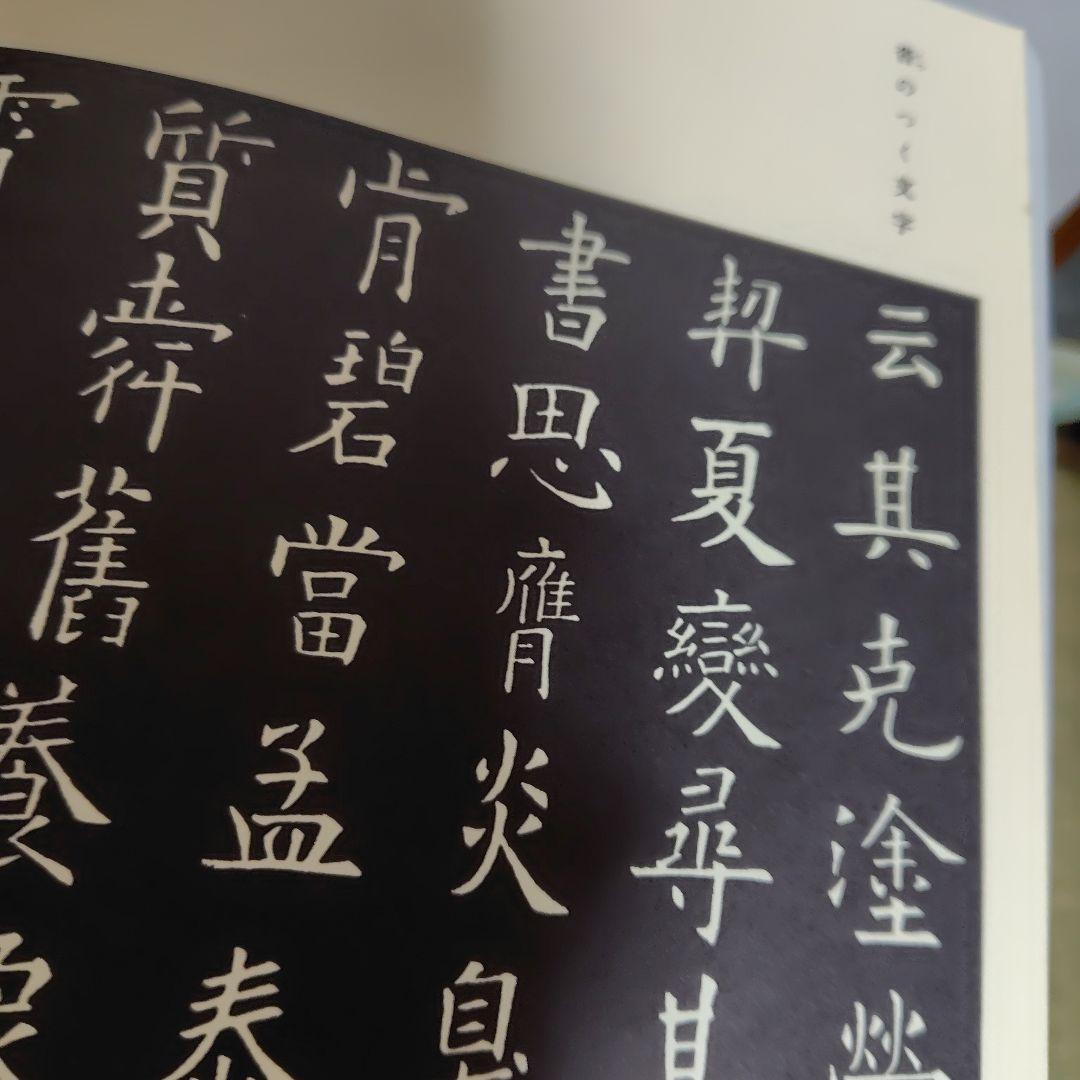 のつく文字
云其克塗
契夏變尋
書思膺炎
肯碧當孟
質舊養